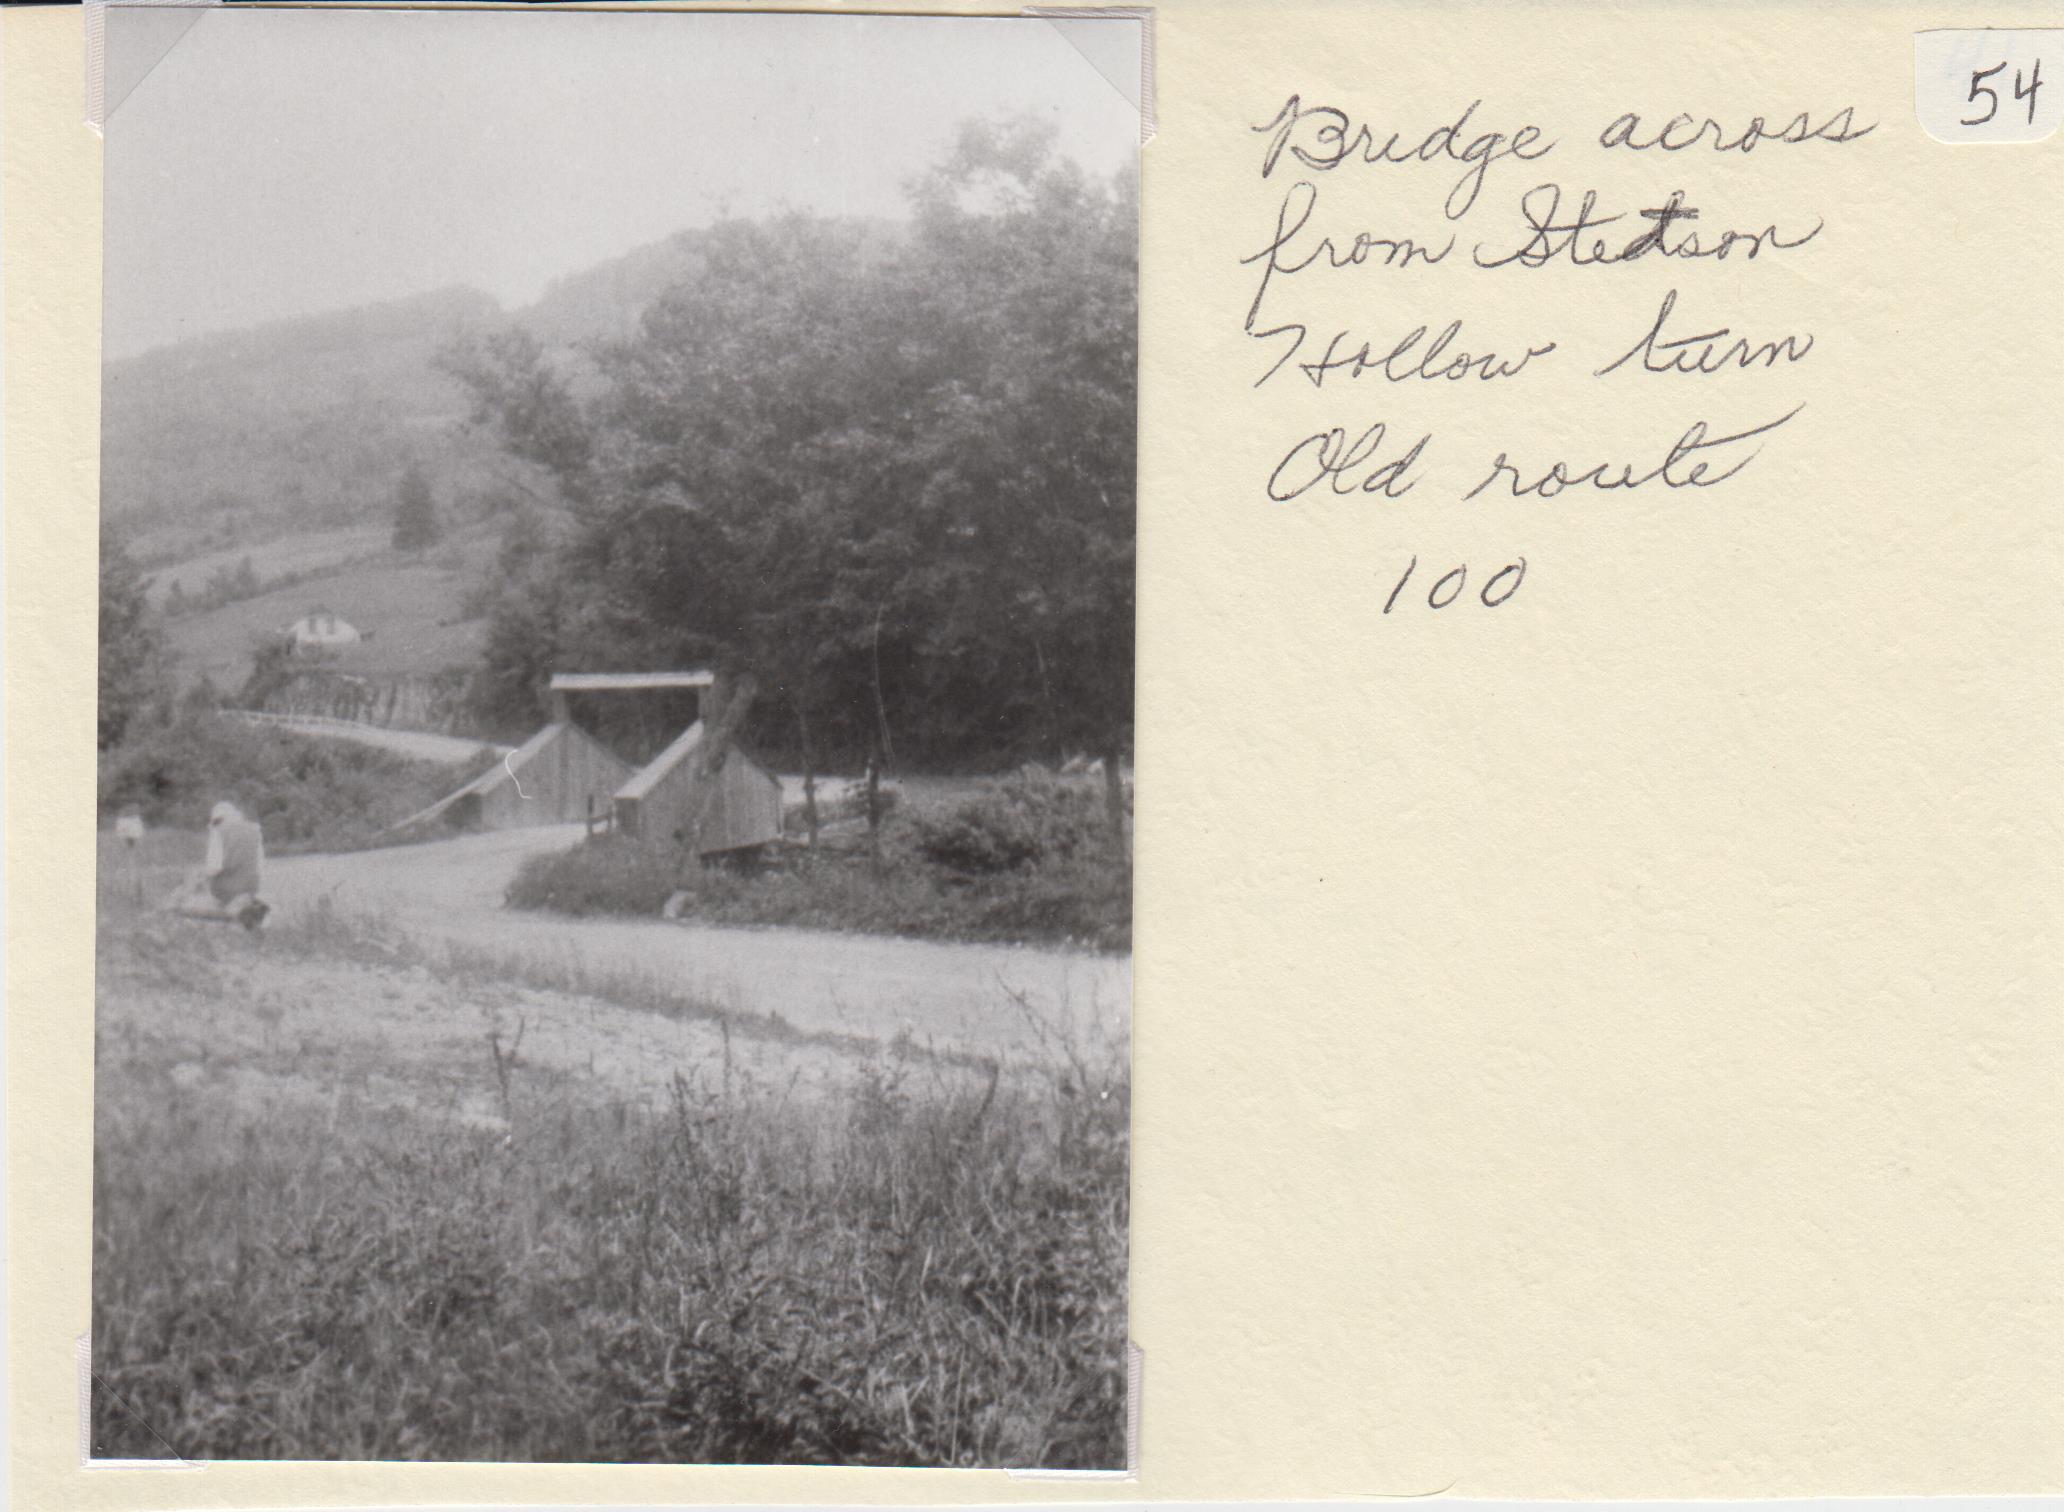 54
Bridge across
from Stetson
Hollow turn
Old route
100